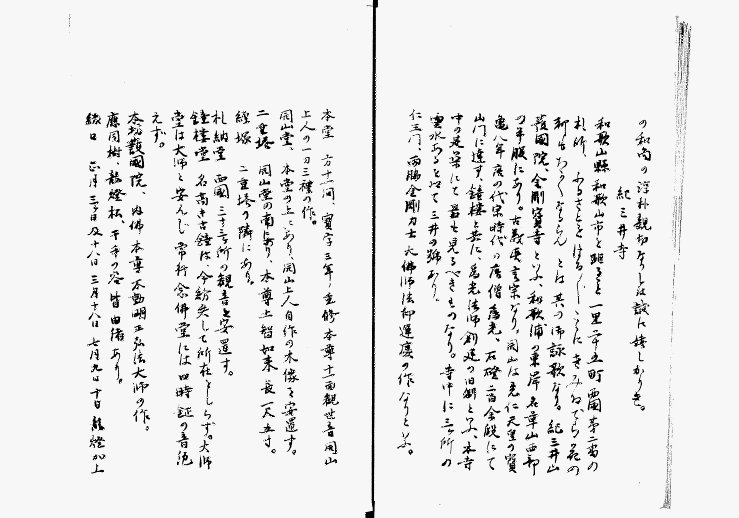 の和尚の淳朴親切なりしは誠に嬉しかりき。
紀三井寺
和歌山縣和歌山市を距ると一里二十五町西國第二番の
札所、ふるさとをはるばるこゝにきみゐでら花の
都もちかくなるらんとは其の御詠歌なり。紀三井山
護國院、金剛寳寺と云、和歌浦の東岸名草山西部
の半腹にあり。古義眞言宗なり、開山は光仁天皇の寳
亀八年唐の代宗時代の唐僧為光、石磴二百余段にて
山門に達す、鐘樓と共に為光法師創建の旧観と云、本寺
中の建築にて最も見るべきものなり。寺中に三ヶ所の
霊水あるとて三井の号あり。
仁王門、両脇金剛力士大佛師法印運慶の作なりと云。
本堂 方十一間 寳字三年、重修本尊十一面観世音開山
上人の一刀三禮の作。
開山堂、本堂の上にあり、開山上人自作の木像を安置す。
二重塔 開山堂の南にあり、本尊五智如来長一尺五寸。
経塚 二重塔の隣にあり。
札納堂 西國三十三ヶ所の観音を安置す。
鐘樓堂 名高き古鐘は今紛失して所在をしらず。大師
堂は大師を安んじ常行念佛堂には四時鉦の音絶
えず。
本坊護國院、内佛本尊不動明王弘法大師の作。
應同樹、龍燈松、千手の谷皆由緒あり。
縁日 正月三ヶ日及十八日三月十八日七月九日十日龍燈が上